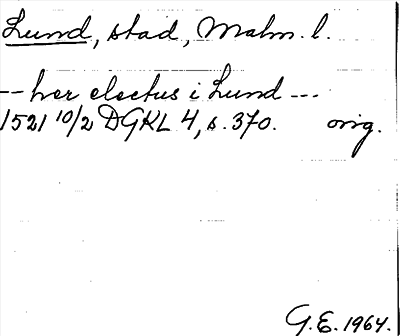 Lund, stad, Malm. l.
-- her electus i Lund ---
1521 10/2 DGKL 4, s. 370. orig.
G.E. 1964.